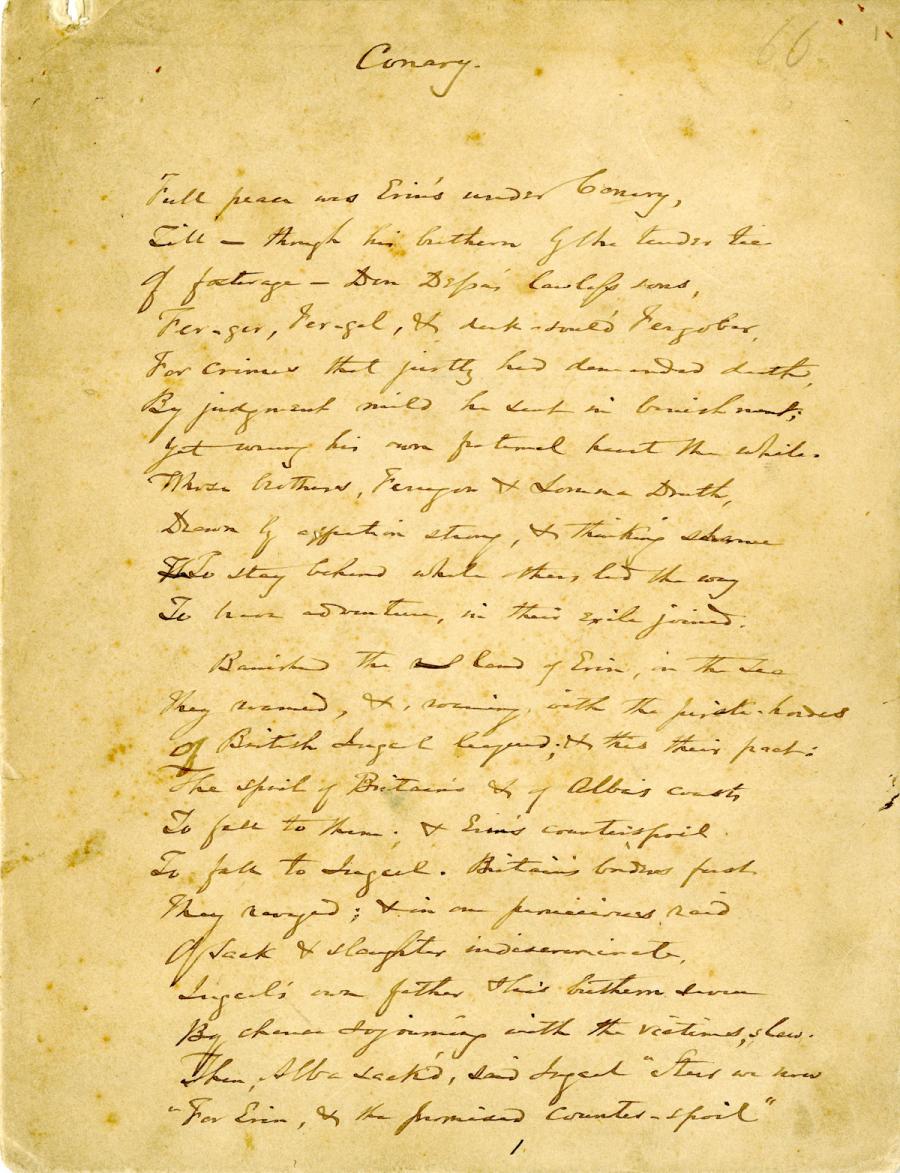 66
Conary.
Full peace was Erin's under Conary,
Till — though his brethren by the tender tie
Of fosterage — Don Dessa's lawless sons,
Fer-ger, Fer-gel, & dark-soul'd Fergobar,
For crimes that justly had demanded death,
By judgment mild he sent in banishment;
Yet wrung his own fraternal heart the while.
Whose brothers, Ferrogon & Lomna Druth,
Drawn by affection strong, & thinking shame
To stay behind while others led the way
To brave adventure, in their exile joined.
Banished the land of Erin, on the sea
They roamed, &, roaming, with the pirate-hordes
Of British Ingcel leagued; & this their pact:
The spoil of Britain's & of Alba's coasts
To fall to them; & Erin's counterspoil
To fall to Ingcel. Britain's borders first
They ravaged; & in one pernicious raid
Of sack & slaughter indiscriminate,
Ingcel's own father & his brethren seven
By chance sojourning with the victims, slew.
Then, Alba sack'd, said Ingcel "Steer we now
"For Erin, & the promised counter-spoil"
1